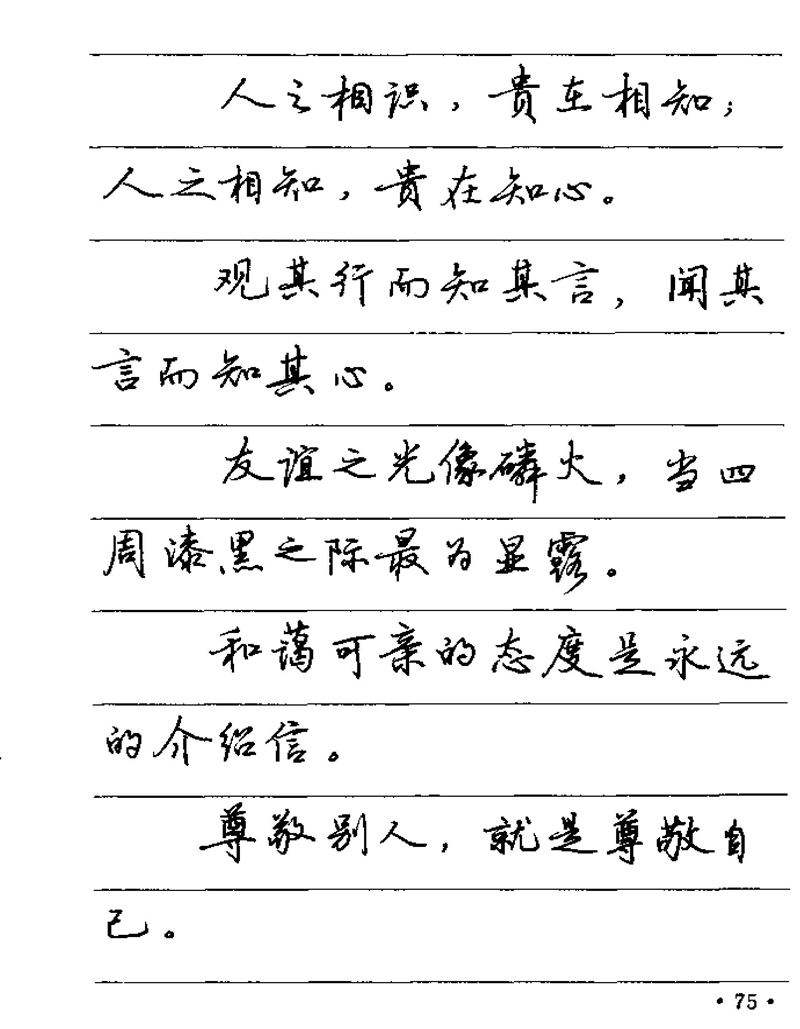 人之相识，贵在相知；
人之相知，贵在知心。
观其行而知其言，闻其
言而知其心。
友谊之光像磷火，当四
周漆黑之际最为显露。
和蔼可亲的态度是永远
的介绍信。
尊敬别人，就是尊敬自
己。
• 75 •